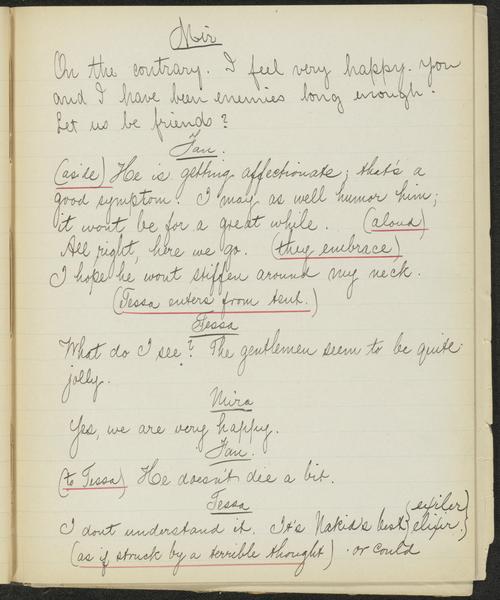 Mir
On the contrary. I feel very happy. You
and I have been enemies long enough.
Let us be friends?
Fan.
(aside) He is getting affectionate; that's a
good symptom. I may as well humor him;
it wont be for a great while. (aloud)
All right, here we go. (they embrace)
I hope he wont stiffen around my neck.
(Tessa enters from tent.)
Tessa
What do I see? The gentlemen seem to be quite
jolly.
Mira
Yes, we are very happy.
Fan.
(to Tessa) He doesn't die a bit.
Tessa
(exiler)
I dont understand it. It's Nakid's best elixir.
(as if struck by a terrible thought) or could